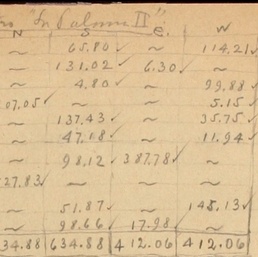 "La Paloma II"
N S E. W
~ 65.80 ✓ ~ 114.21 ✓
~ 131.02 ✓ 6.30 ✓ ~
~ 4.80 ✓ ~ 99.88 ✓
07.05 ✓ ~ ~ 5.15 ✓
~ 137.43 ✓ ~ 35.75 ✓
~ 47.18 ✓ ~ 11.94 ✓
~ 98.12 ✓ 387.78 ✓ ~
27.83 ✓ ~ ~ ~
~ 51.87 ✓ ~ 145.13 ✓
~ 98.66 ✓ 17.98 ✓ ~
34.88 634.88 412.06 412.06